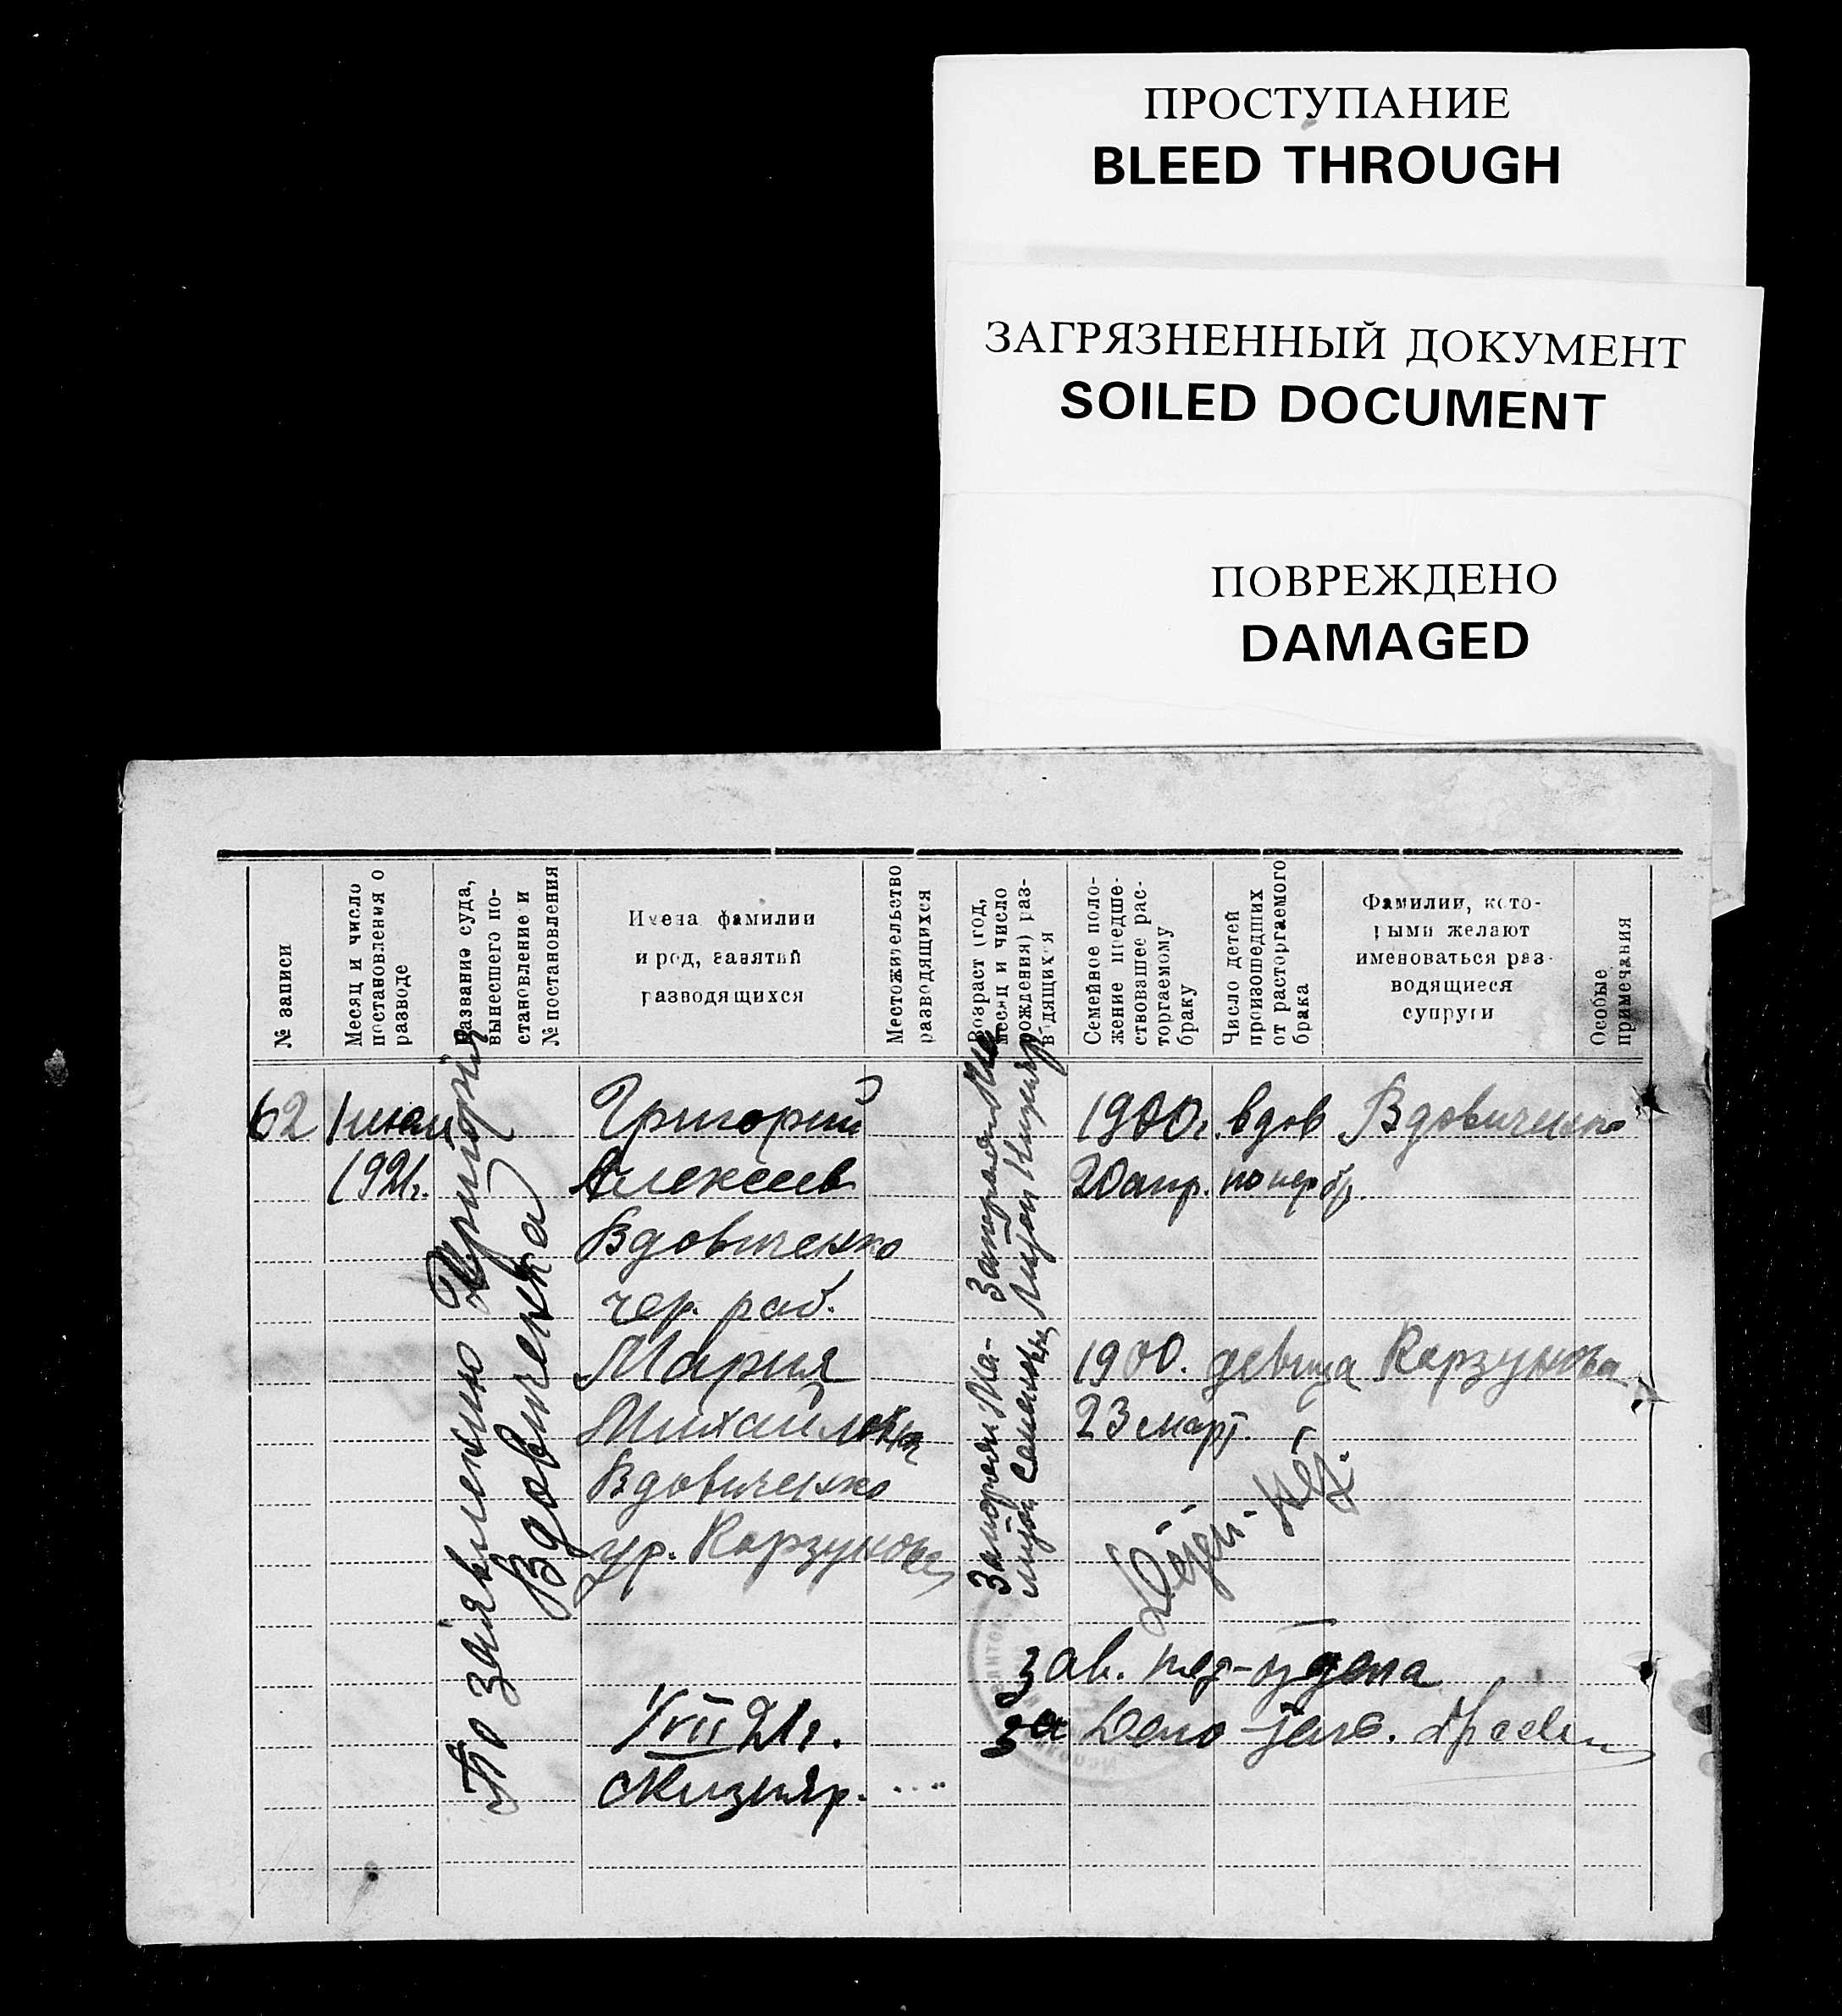 ПРОСТУПАНИЕ
BLEED THROUGH
ЗАГРЯЗНЕННЫЙ ДОКУМЕНТ
SOILED DOCUMENT
ПОВРЕЖДЕНО
DAMAGED
№ записи
Месяц и число
постановления о
разводе
Название суда,
вынесшего по-
становление и
№ постановления
Имена фамилии
и род, занятий
разводящихся
Местожительство
разводящихся
Возраст (год,
месяц и число
рождения) раз-
водящихся
Семейное поло-
жение предше-
ствовавшее рас-
торгаемому
браку
Число детей
произошедших
от расторгаемого
брака
Фамилии, кото-
рыми желают
именоваться раз-
водящиеся
супруги
Особые
примечания
62
1 июля
1921г.
По заявлению Григория
Вдовиченка
Григорий
Алексеев
Вдовиченко
чер. раб.
Мария
Михайловна
Вдовиченко
ур. Карзунова
1900г. вдов Вдовиченко
20 апр. по пер бр.
1900. девица Карзунова
23 март.
Детей нет.
зав. под-отдела
за Дело
1/VII 21г.